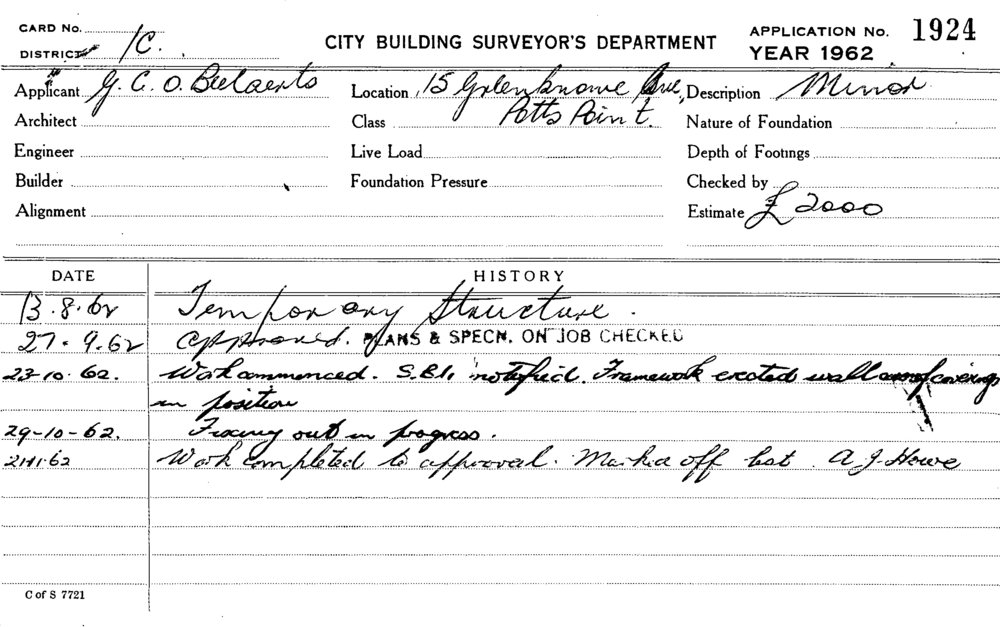 CARD No.
DISTRICT 1C.
CITY BUILDING SURVEYOR'S DEPARTMENT
APPLICATION No. 1924
YEAR 1962
Applicant G. C. O. Beelaerts
Location 15 Greenknowe Ave,
Description Minor
Architect
Class Potts Point.
Nature of Foundation
Engineer
Live Load
Depth of Footings
Builder
Foundation Pressure
Checked by
Alignment
Estimate £ 2000
DATE HISTORY
13.8.62 Temporary Structure.
27.9.62 Approved. PLANS & SPECN. ON JOB CHECKED
23-10-62. Work commenced. S.B.I. notified. Framework erected wall roof coverings
in position
29-10-62. Fixing out in progress.
2111.62 Work completed to approval. Marked off list A J Howe
C of S 7721